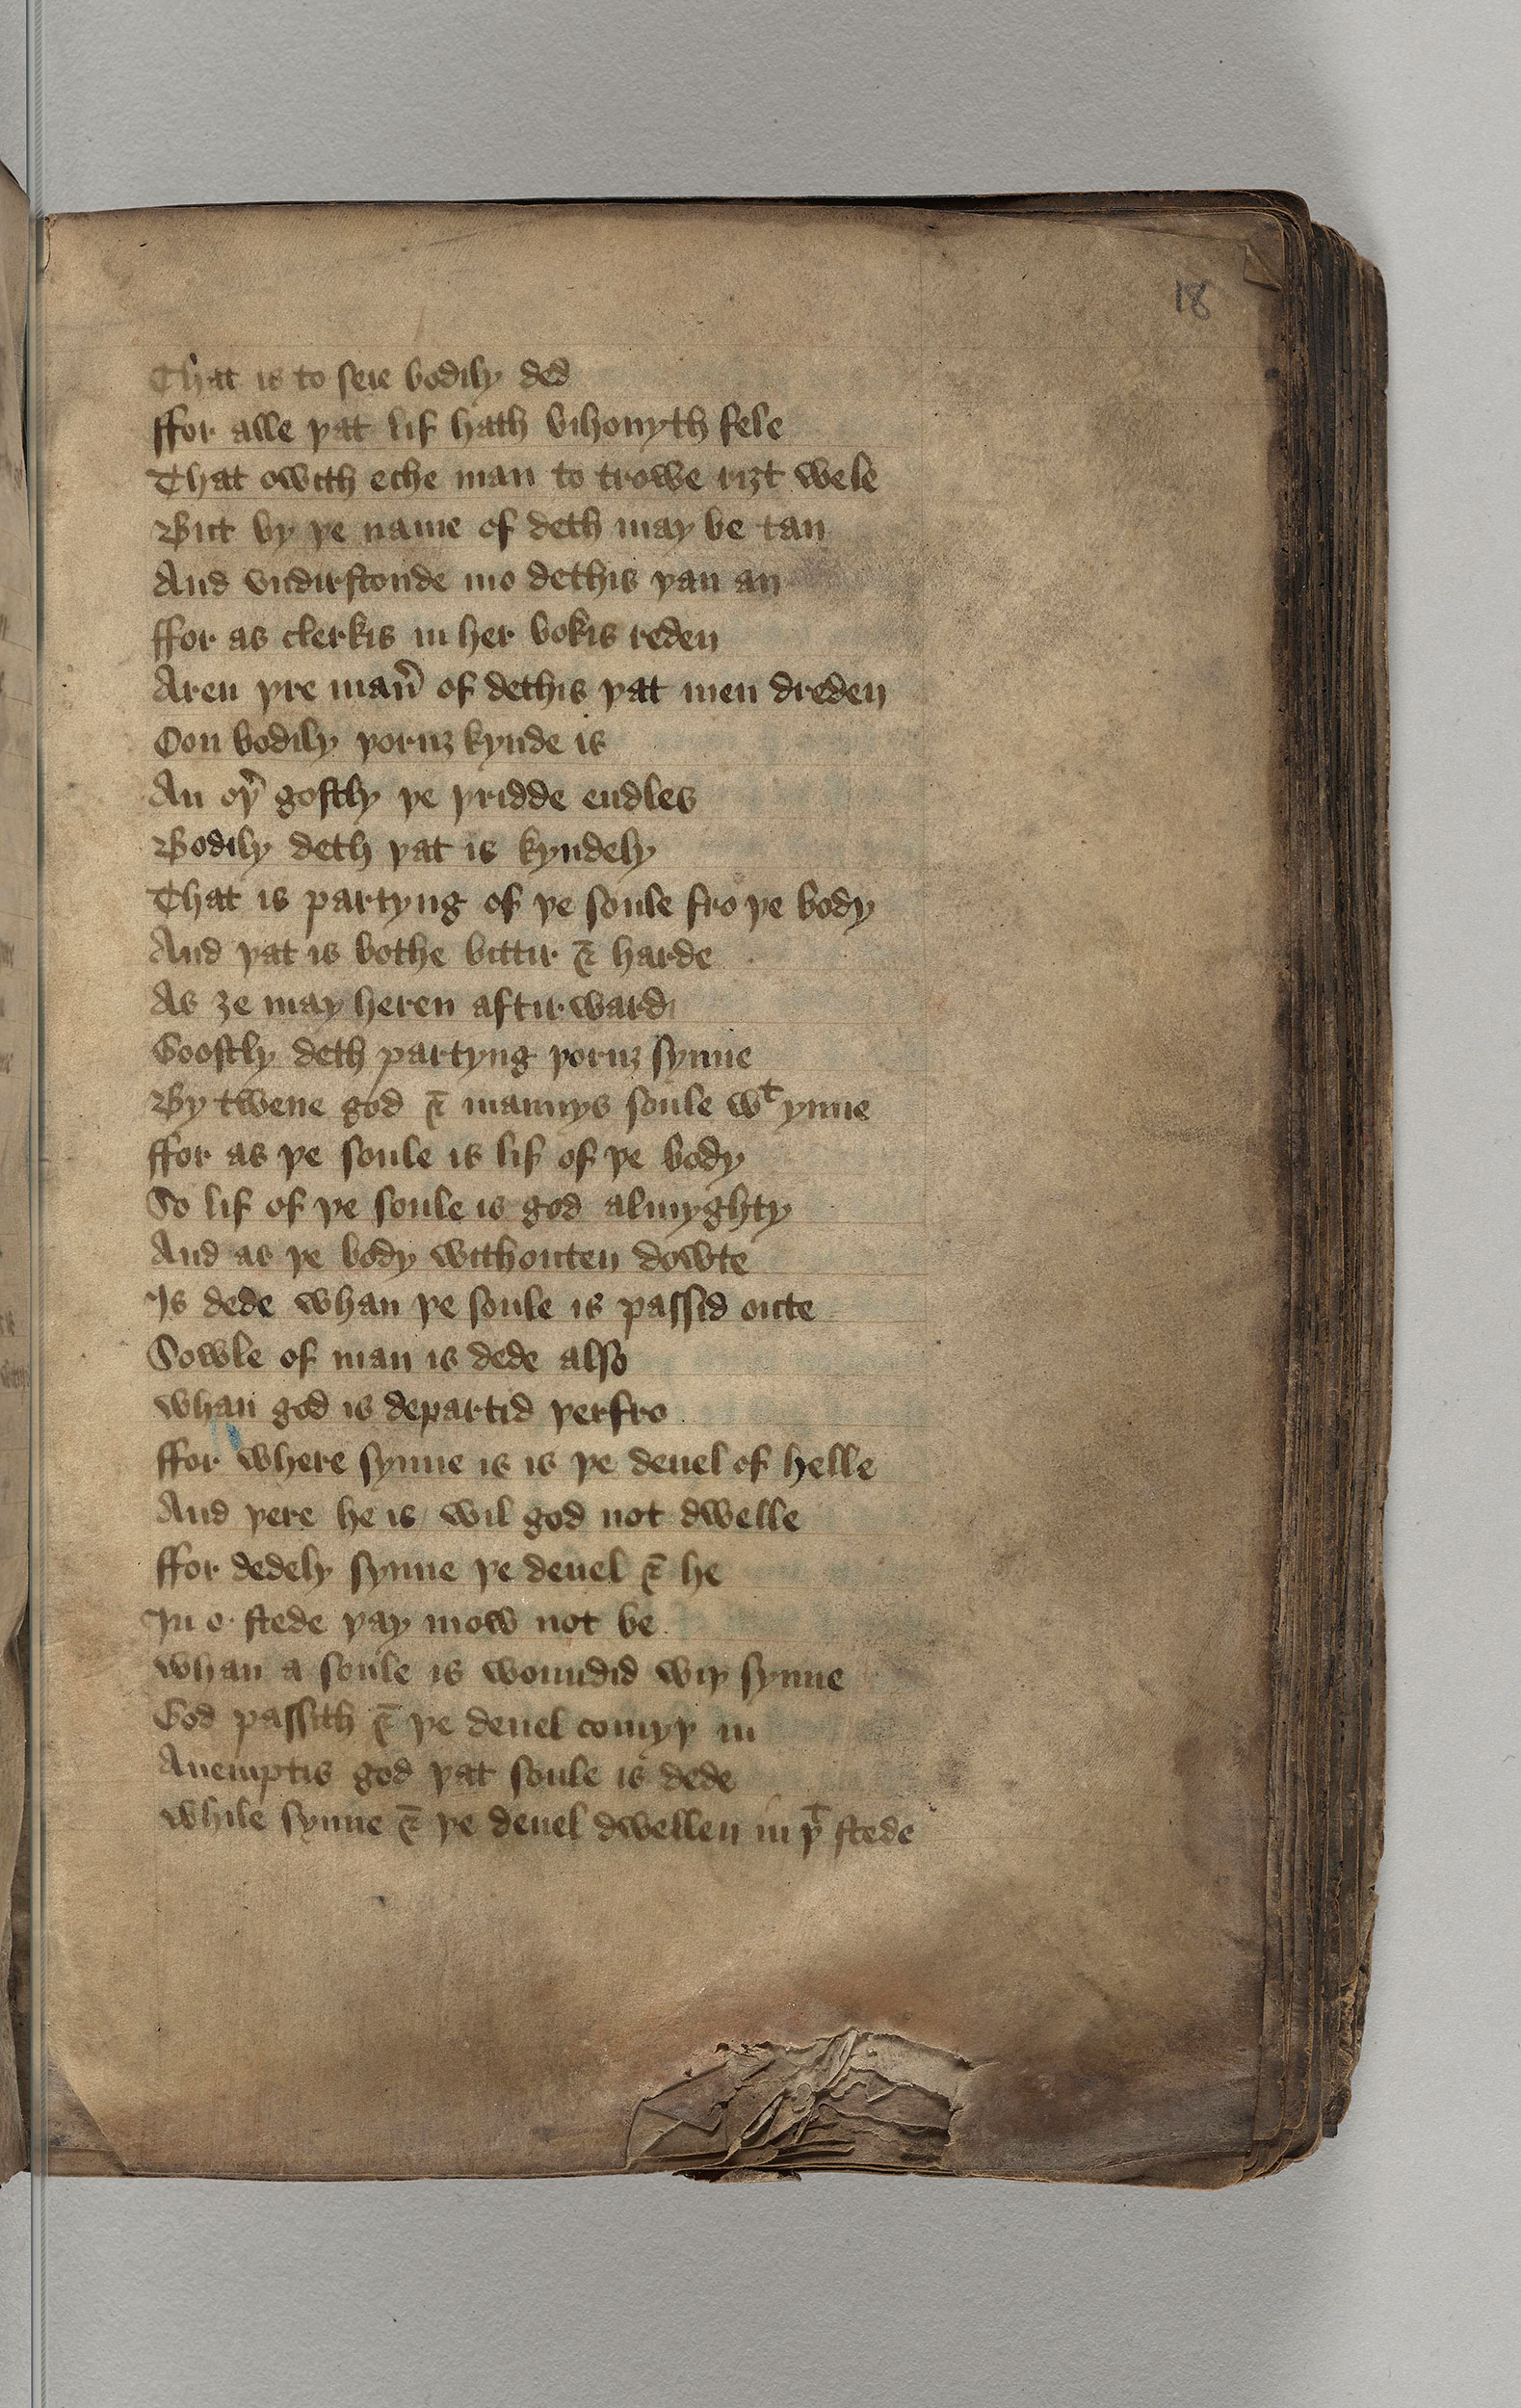 18
That is to seie bodily ded
ffor alle þat lif hath bihouyth fele
That owith eche man to trowe riȝt wele
But by þe name of deth may be tan
And vndirstonde mo dethis þan an
ffor as clerkis in her bokis reden
Aren þre man̄ of dethis þat men dreden
Oon bodily þoruȝ kynde is
An oþ̉ gostly þe þridde endles
Bodily deth þat is kyndely
That is partyng of þe soule fro þe body
And þat is bothe bittir & harde
As ȝe may heren aftirward
Goostly deth partyng þoruȝ synne
By twene god & mannys soule wᵗ ynne
ffor as þe soule is lif of þe body
So lif of þe soule is god almyghty
And as þe body withouten dowte
Is dede whan þe soule is passid oute
Sowle of man is dede also
whan god is departid þerfro
ffor where synne is is þe deuel of helle
And þere he is / wil god not dwelle
ffor dedely synne þe deuel & he
In o stede þay mow not be
whan a soule is woundid wiþ synne
God passith & þe deuel comyþ in
Anemptis god þat soule is dede
while synne & þe deuel dwellen in þᵗ stede